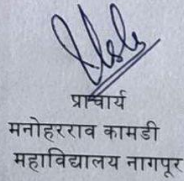 प्राचार्य
मनोहरराव कामडी
महाविद्यालय नागपूर